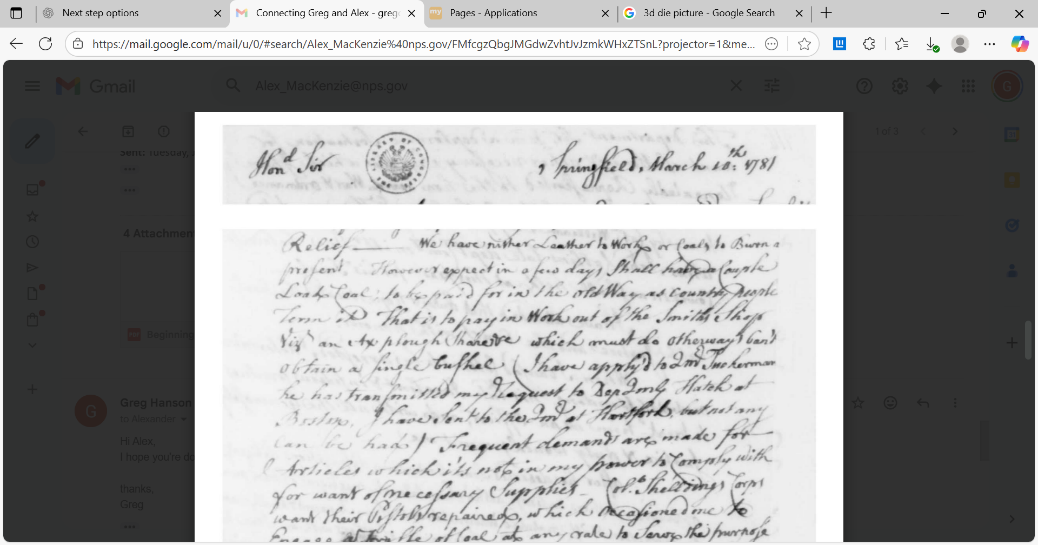 Next step options
Connecting Greg and Alex - greg
Pages - Applications
3d die picture - Google Search
https://mail.google.com/mail/u/0/#search/Alex_MacKenzie%40nps.gov/FMfcgzQbgJMGdwZvhtJvJzmkWHxZTSnL?projector=1&me...
Gmail
Alex_MacKenzie@nps.gov
1 of 2
Sent: Tuesday,
4 Attachmen
Beginning
Greg Hanson
to Alexander
Hi Alex,
I hope you're do
thanks,
Greg
Hond Sir
Springfield, March 10th 1781
Relief — We have nither Leather to Work or Coals to Burn a
present, However expect in a few days Shall have a Couple
Loads Coal; to be paid for in the old Way as Country people
Term it That is to pay in Work out of the Smiths Shop
Viz an Ax plough Share &c which must do otherways cant
obtain a single bushel (I have apply'd to Tuckerman
he has transmitted my Request to Dep Hatch at
Boston, I have Sent to the at Hartford, but not any
Can be had) Frequent demands are made for
Articles which its not in my power to Comply with
for want of necessary Supplies — Col. Sheldings Corps
want their Pistols repaired, which Occasioned me to
Engage a of Coal at any rate to Serve the purpose